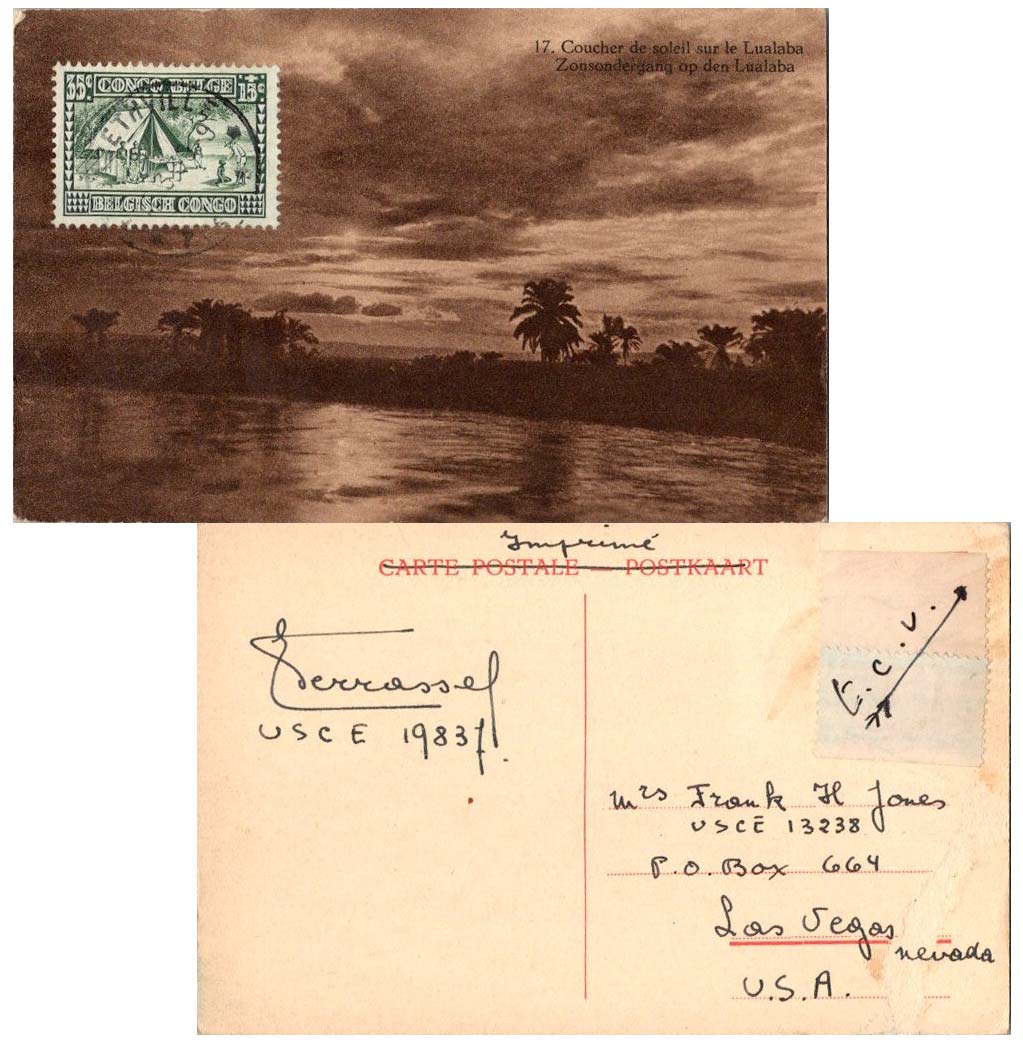 17. Coucher de soleil sur le Lualaba
Zonsondergang op den Lualaba
35c CONGO BELGE + 15c
BELGISCH CONGO
Imprimé
CARTE POSTALE — POSTKAART
T.C.V.
USCE 19837.
Mrs Frank H Jones
USCE 13238
P.O. Box 664
Las Vegas
nevada
U.S.A.